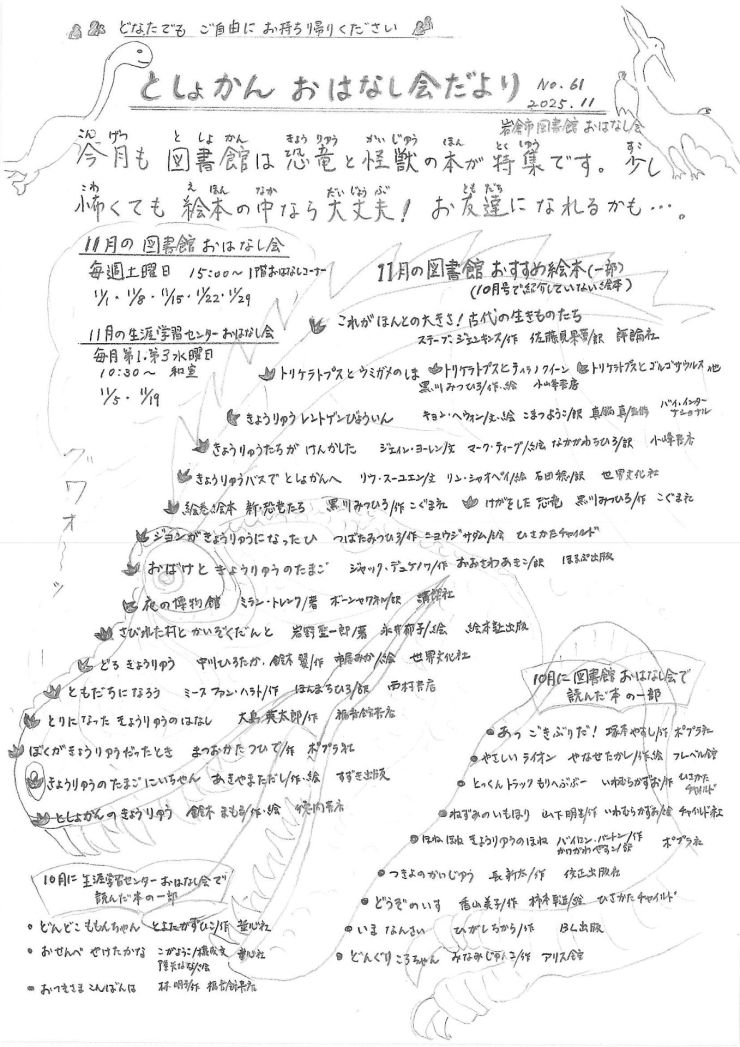 どなたでも ご自由に お持ち帰りください
としょかん おはなし会だより No.61
2025.11
岩倉市図書館 おはなし会
今月も 図書館は 恐竜と 怪獣の 本が 特集です。 少し
怖くても 絵本の中なら 大丈夫! お友達に なれるかも…。
11月の 図書館 おはなし会
毎週土曜日 15:00～ 1階おはなしコーナー
11/1・11/8・11/15・11/22・11/29
11月の 生涯学習センター おはなし会
毎月 第1・第3 水曜日
10:30～ 和室
11/5・11/19
グワオ～～ッ
11月の図書館 おすすめ絵本(一部)
(10月号で紹介していない絵本)
これがほんとの大きさ! 古代の生きものたち
スティーブ・ジェンキンズ/作 佐藤見果夢/訳 評論社
トリケラトプスとウミガメのしま トリケラトプスとティラノクイーン トリケラトプスとゴルゴサウルス 他
黒川みつひろ/作・絵 小峰書店
きょうりゅうレントゲンびょういん キョン・ヘウォン/文・絵 こまつようこ/訳 真鍋真/監修 バイ・インターナショナル
きょうりゅうたちが けんかした ジェイン・ヨーレン/文 マーク・ティーグ/絵 なかがわちひろ/訳 小峰書店
きょうりゅうバスで としょかんへ リウ・スーユエン/文 リン・シャオペイ/絵 石田稔/訳 世界文化社
絵巻き絵本 新・恐竜たち 黒川みつひろ/作 こぐま社 けがをした恐竜 黒川みつひろ/作 こぐま社
ジョンがきょうりゅうになったひ つばたみつひろ/作 ニヨウジサダム/絵 ひさかたチャイルド
おばけと きょうりゅうのたまご ジャック・デュケノワ/作 おおさわあきら/訳 ほるぷ出版
夜の博物館 ミラン・トレンク/著 講談社
さびれた村と かいぞくだんと 岩野聖一郎/著 永井郁子/絵 絵本塾出版
どろ きょうりゅう 中川ひろたか、鈴木翼/作 市居みか/絵 世界文化社
ともだちになろう ミース ファン・ハウト/作 ほんまちひろ/訳 西村書店
とりになった きょうりゅうのはなし 大島英太郎/作 福音館書店
ぼくがきょうりゅうだったとき まつおかたつひで/作 ポプラ社
きょうりゅうのたまごにいちゃん あきやまただし/作・絵 すずき出版
としょかんのきょうりゅう 鈴木まもる/作・絵 徳間書店
10月に 図書館 おはなし会で
読んだ本の一部
あっ ごきぶりだ! 塚本やすし/作 ポプラ社
やさしいライオン やなせたかし/作・絵 フレーベル館
とっくんトラック もりへぶぶー いわむらかずお/作 ひさかたチャイルド
ねずみのいもほり 山下明生/作 いわむらかずお/絵 チャイルド社
ほね ほね きょうりゅうのほね バイロン・バートン/作
かけがわやすこ/訳 ポプラ社
つきよのかいじゅう 長新太/作 佼正出版社
どうぞのいす 香山美子/作 柿本幸造/絵 ひさかたチャイルド
いま なんさい ひがしちから/作 BL出版
どんぐりころちゃん みなみじゅんこ/作 アリス館
10月に 生涯学習センター おはなし会で
読んだ本の一部
どんどこ ももんちゃん とよたかずひこ/作 童心社
おせんべ やけたかな こがようこ/構成・文 童心社
降矢なな/絵
おつきさま こんばんは 林明子/作 福音館書店